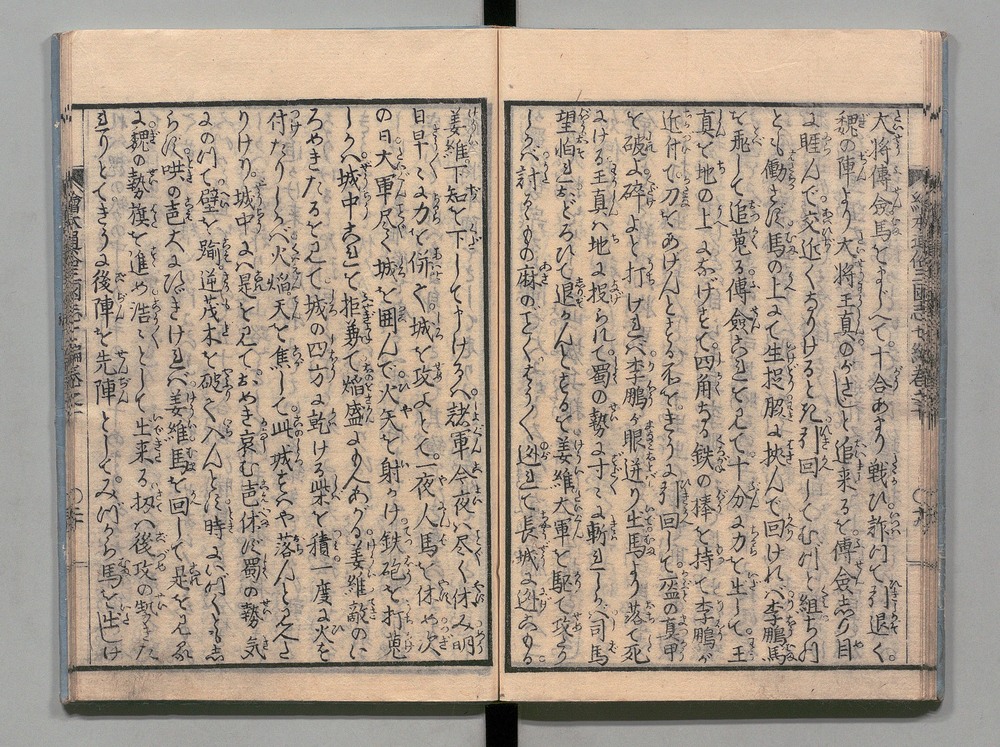 大将傅僉馬をまじへて十合あまり戦ひ詐りて引退く。
魏の陣より大将王真のがさじと追来ると傅僉しり目
に睚んで交近くなりけるとき引回してむずと組ちつ
とも働さず馬の上にて生捉脇に挟んで回けれバ李鵬馬
を飛して追蒐る傅僉これを見て十分に力を生して。王
真を地の上になげすて四角なる鉄の棒を持て李鵬が
近付て刀をあげんとする所をきらに引回して盔の真甲
を破よ砕よと打けれバ李鵬が眼迸り生馬より落て死
にける王真ハ地に投られて蜀の勢に寸々に斬れしかバ司馬
望怕れおどろひて退かんとする を姜維大軍を駆て攻かゝり
しかバ討るゝもの麻のごとくやう〳〵逃れて長城に逃こもる。
姜維下知を下して申けるハ諸軍今夜ハ尽く休み明
日早々に力を併て城を攻よとて一夜人馬を休め次
の日大軍尽く城を囲んで火矢を射かけ鉄砲を打蒐
しかバ城中これを拒兼て焔盛にもえあがる姜維敵のい
ろめきたるを見て城の四方に乾ける柴を積一度に火を
付たりしかバ火焔天を焦して此城すでに落んと見えた
りけり城中に是を見ておめき哀む声休ず蜀の勢気
にのつて壁を踰逆茂木を破て入んとする時にいづくともし
らず哄の声大にひゞきければ姜維馬を回して是を見る
に魏の勢旗を進め浩々として生来る扨ハ後攻の勢きた
れりとてきうに後陣を先陣としてみづから馬を出しけ